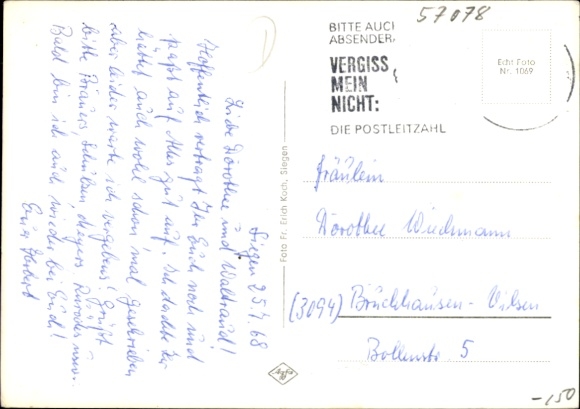 Siegen 25.4.68
Liebe Dorothee und Waltraud!
Hoffentlich vertragt Ihr Euch noch und
paßt auf Alles gut auf. Ich dachte Ihr
hättet auch wohl schon mal geschrieben
aber leider warte ich vergebens! Grüßt
bitte Bräuers Schulßen, usw.
Bald bin ich auch wieder bei Euch!
Eure Herbert
Foto Fr. Erich Koch, Siegen
57078
BITTE AUCH
ABSENDER,
VERGISS
MEIN
NICHT:
DIE POSTLEITZAHL
Echt Foto
Nr. 1069
Fräulein
Dorothee Wiechmann
(3094) Bruchhausen-Vilsen
Bollenstr. 5
Agfa
-150